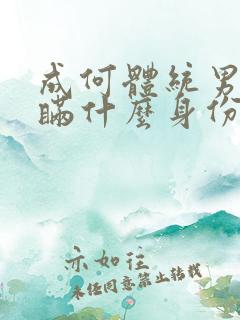 成何體統男
瞞什麼身份
亦如往
未經同意禁止轉載